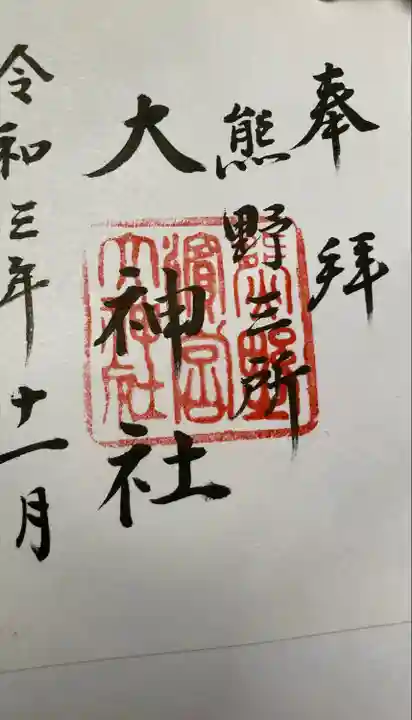 奉拝
熊野三所
大神社
令和三年十一月
熊野
濱宮
大神社